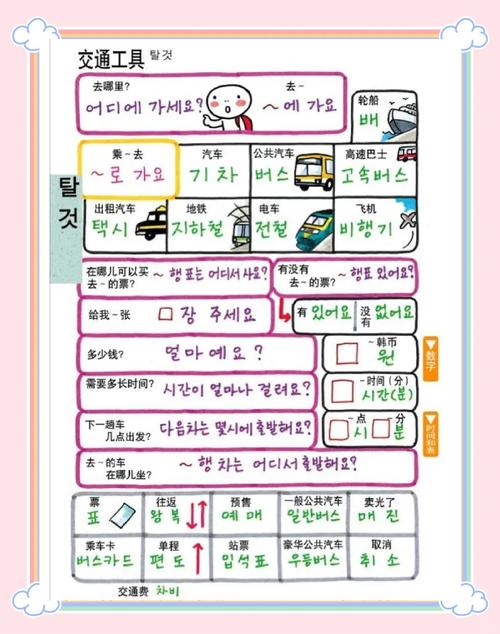 交通工具 탈것
去哪里?
어디에 가세요?
去~
~에 가요
轮船
배
탈것
乘~去
~로 가요
汽车
기차
公共汽车
버스
高速巴士
고속버스
出租汽车
택시
地铁
지하철
电车
전철
飞机
비행기
在哪儿可以买
去~的票?
~행표는어디서사요?
有没有
去~的票?
~행표 있어요?
给我~张
□장 주세요
有 있어요
没有 없어요
多少钱?
얼마예요?
~韩币
원
▼数字
需要多长时间?
시간이 얼마나 걸려요?
~时间(分)
시간(분)
下一趟车
几点出发?
다음차는 몇시에출발해요?
~点 ~分
시 분
▼时间和表
去~的车
在哪儿坐?
~행 차는 어디서출발해요?
票
표
往返
왕복
预售
예매
一般公共汽车
일반버스
卖光了
매진
乘车卡
버스카드
单程
편도
站票
입석표
豪华公共汽车
우등버스
取消
취소
交通费 차비